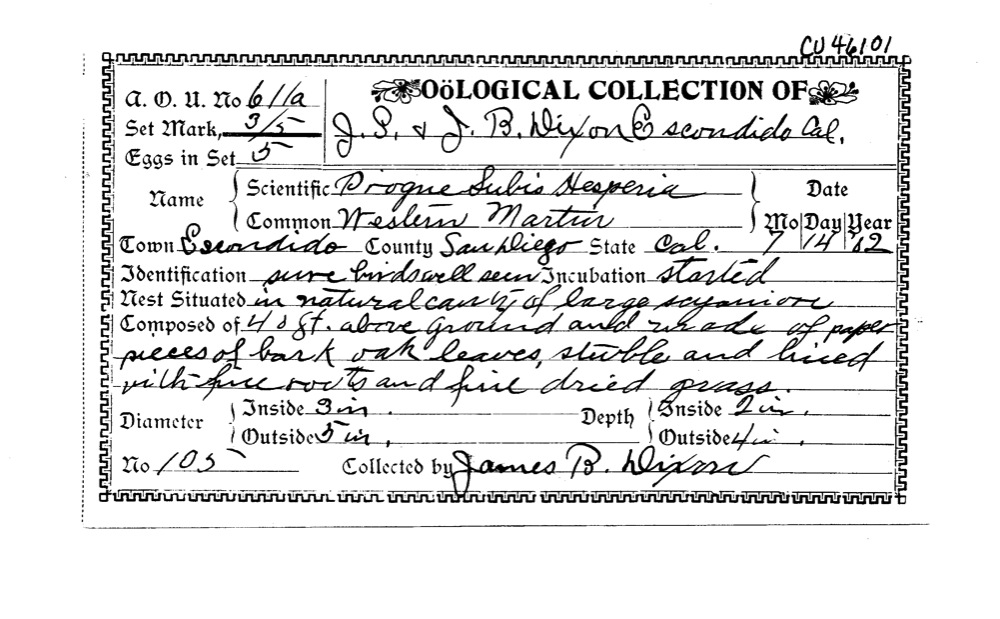 CU 46101
A. O. U. No 611a OöLOGICAL COLLECTION OF
Set Mark, 3/5 J. S. & J. B. Dixon Escondido Cal.
Eggs in Set 5
Name Scientific Progne Subis Hesperia Date
Common Western Martin Mo Day Year
Town Escondido County San Diego State Cal. 7 14 '02
Identification sure birds well seen Incubation started
Nest Situated in natural cavity of large sycamore
Composed of 40 ft. above ground and made of paper
pieces of bark oak leaves, stubble and lined
with fine roots and fine dried grass.
Diameter Inside 3 in. Depth Inside 2 in.
Outside 5 in. Outside 4 in.
No 105 Collected by James B. Dixon